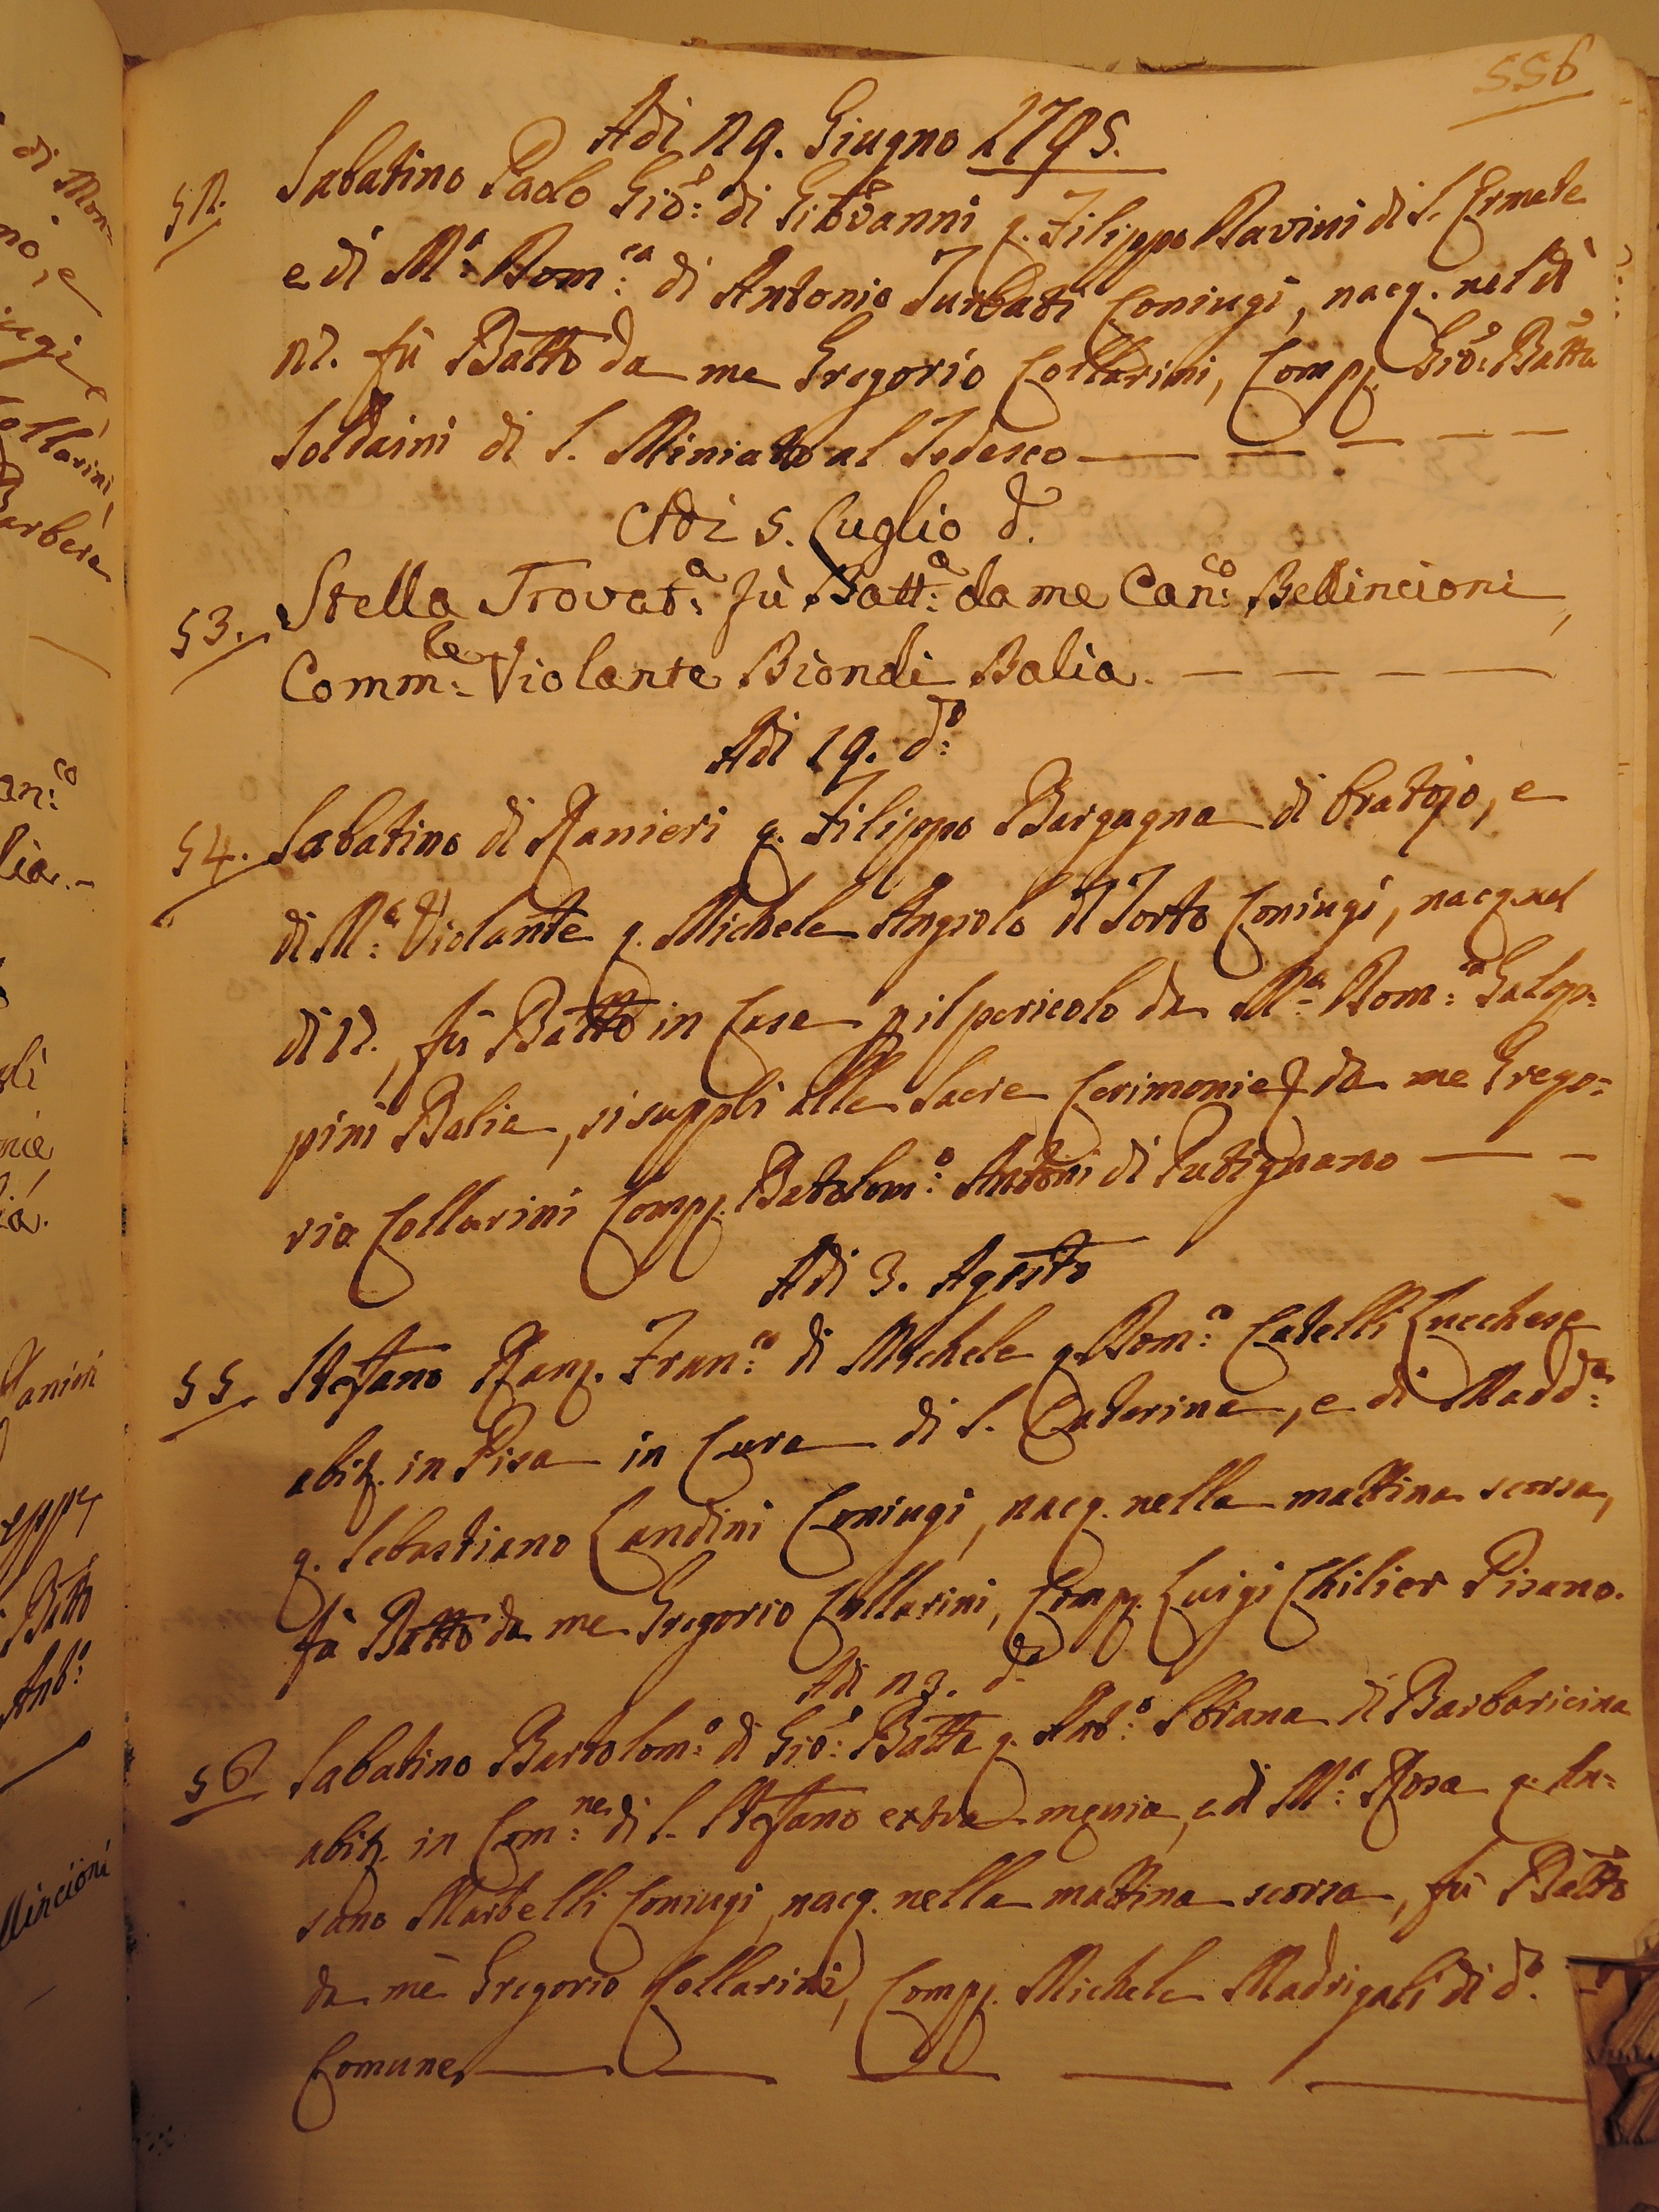 556
Adì 29. Giugno 1795.
52. Sabatino Paolo Gio: di Giovanni q. Filippo Ravini di S. Ermete
e di M.a Dom:ca di Antonio Turbati Coniugi, nacq. nel dì
27. fù Batto da me Gregorio Collarini, Comp. Gio: Batta
Soldaini di S. Miniato al Tedesco
Adi 5. Luglio d.o
53. Stella Trovat:a fù Batt:a da me Can:co Bellincioni,
Comm:le Violante Biondi Balia.
Adì 19. d:o
54. Sabatino di Ranieri q. Filippo Bargagna di Oratojo, e
di M:a Violante q. Michele Angiolo del Torto Coniugi, nacq. nel
dì 17., fù Batto in Casa p il pericolo da M:a Dom:ca Galop=
pini Balia, si supplì alle Sacre Cerimonie da me Grego=
rio Collarini Comp. Batolom:o Antoni di Putignano
Adì 3. Agosto
55. Stefano Ran. Fran:co di Michele q. Dom:co Catelli Lucchese
abit. in Pisa in Cura di S. Caterina, e di Madd:a
q. Sebastiano Landini Coniugi, nacq. nella mattina scorsa,
fù Batto da me Gregorio Collarini, Comp. Luigi Chilier Pisano.
Adì 23. d.o
56 Sabatino Bartolom:o di Gio: Batta q. Ant:o Sbrana di Barbaricina
abit. in Com:ne di S. Stefano extra menia, e di M:a Rosa q. An=
sano Martelli Coniugi, nacq. nella mattina scorsa, fù Batto
da me Gregorio Collarini, Comp. Michele Madrigali di d.o
Comune